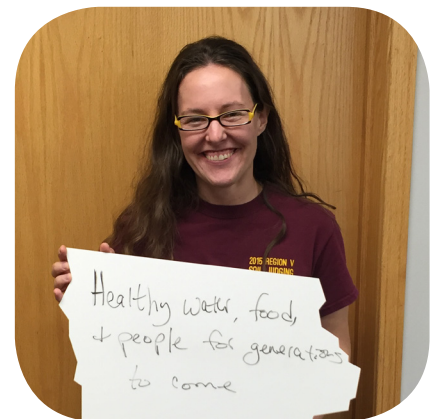 2015 REGION V
SOIL JUDGING
Healthy water, food,
+ people for generations
to come